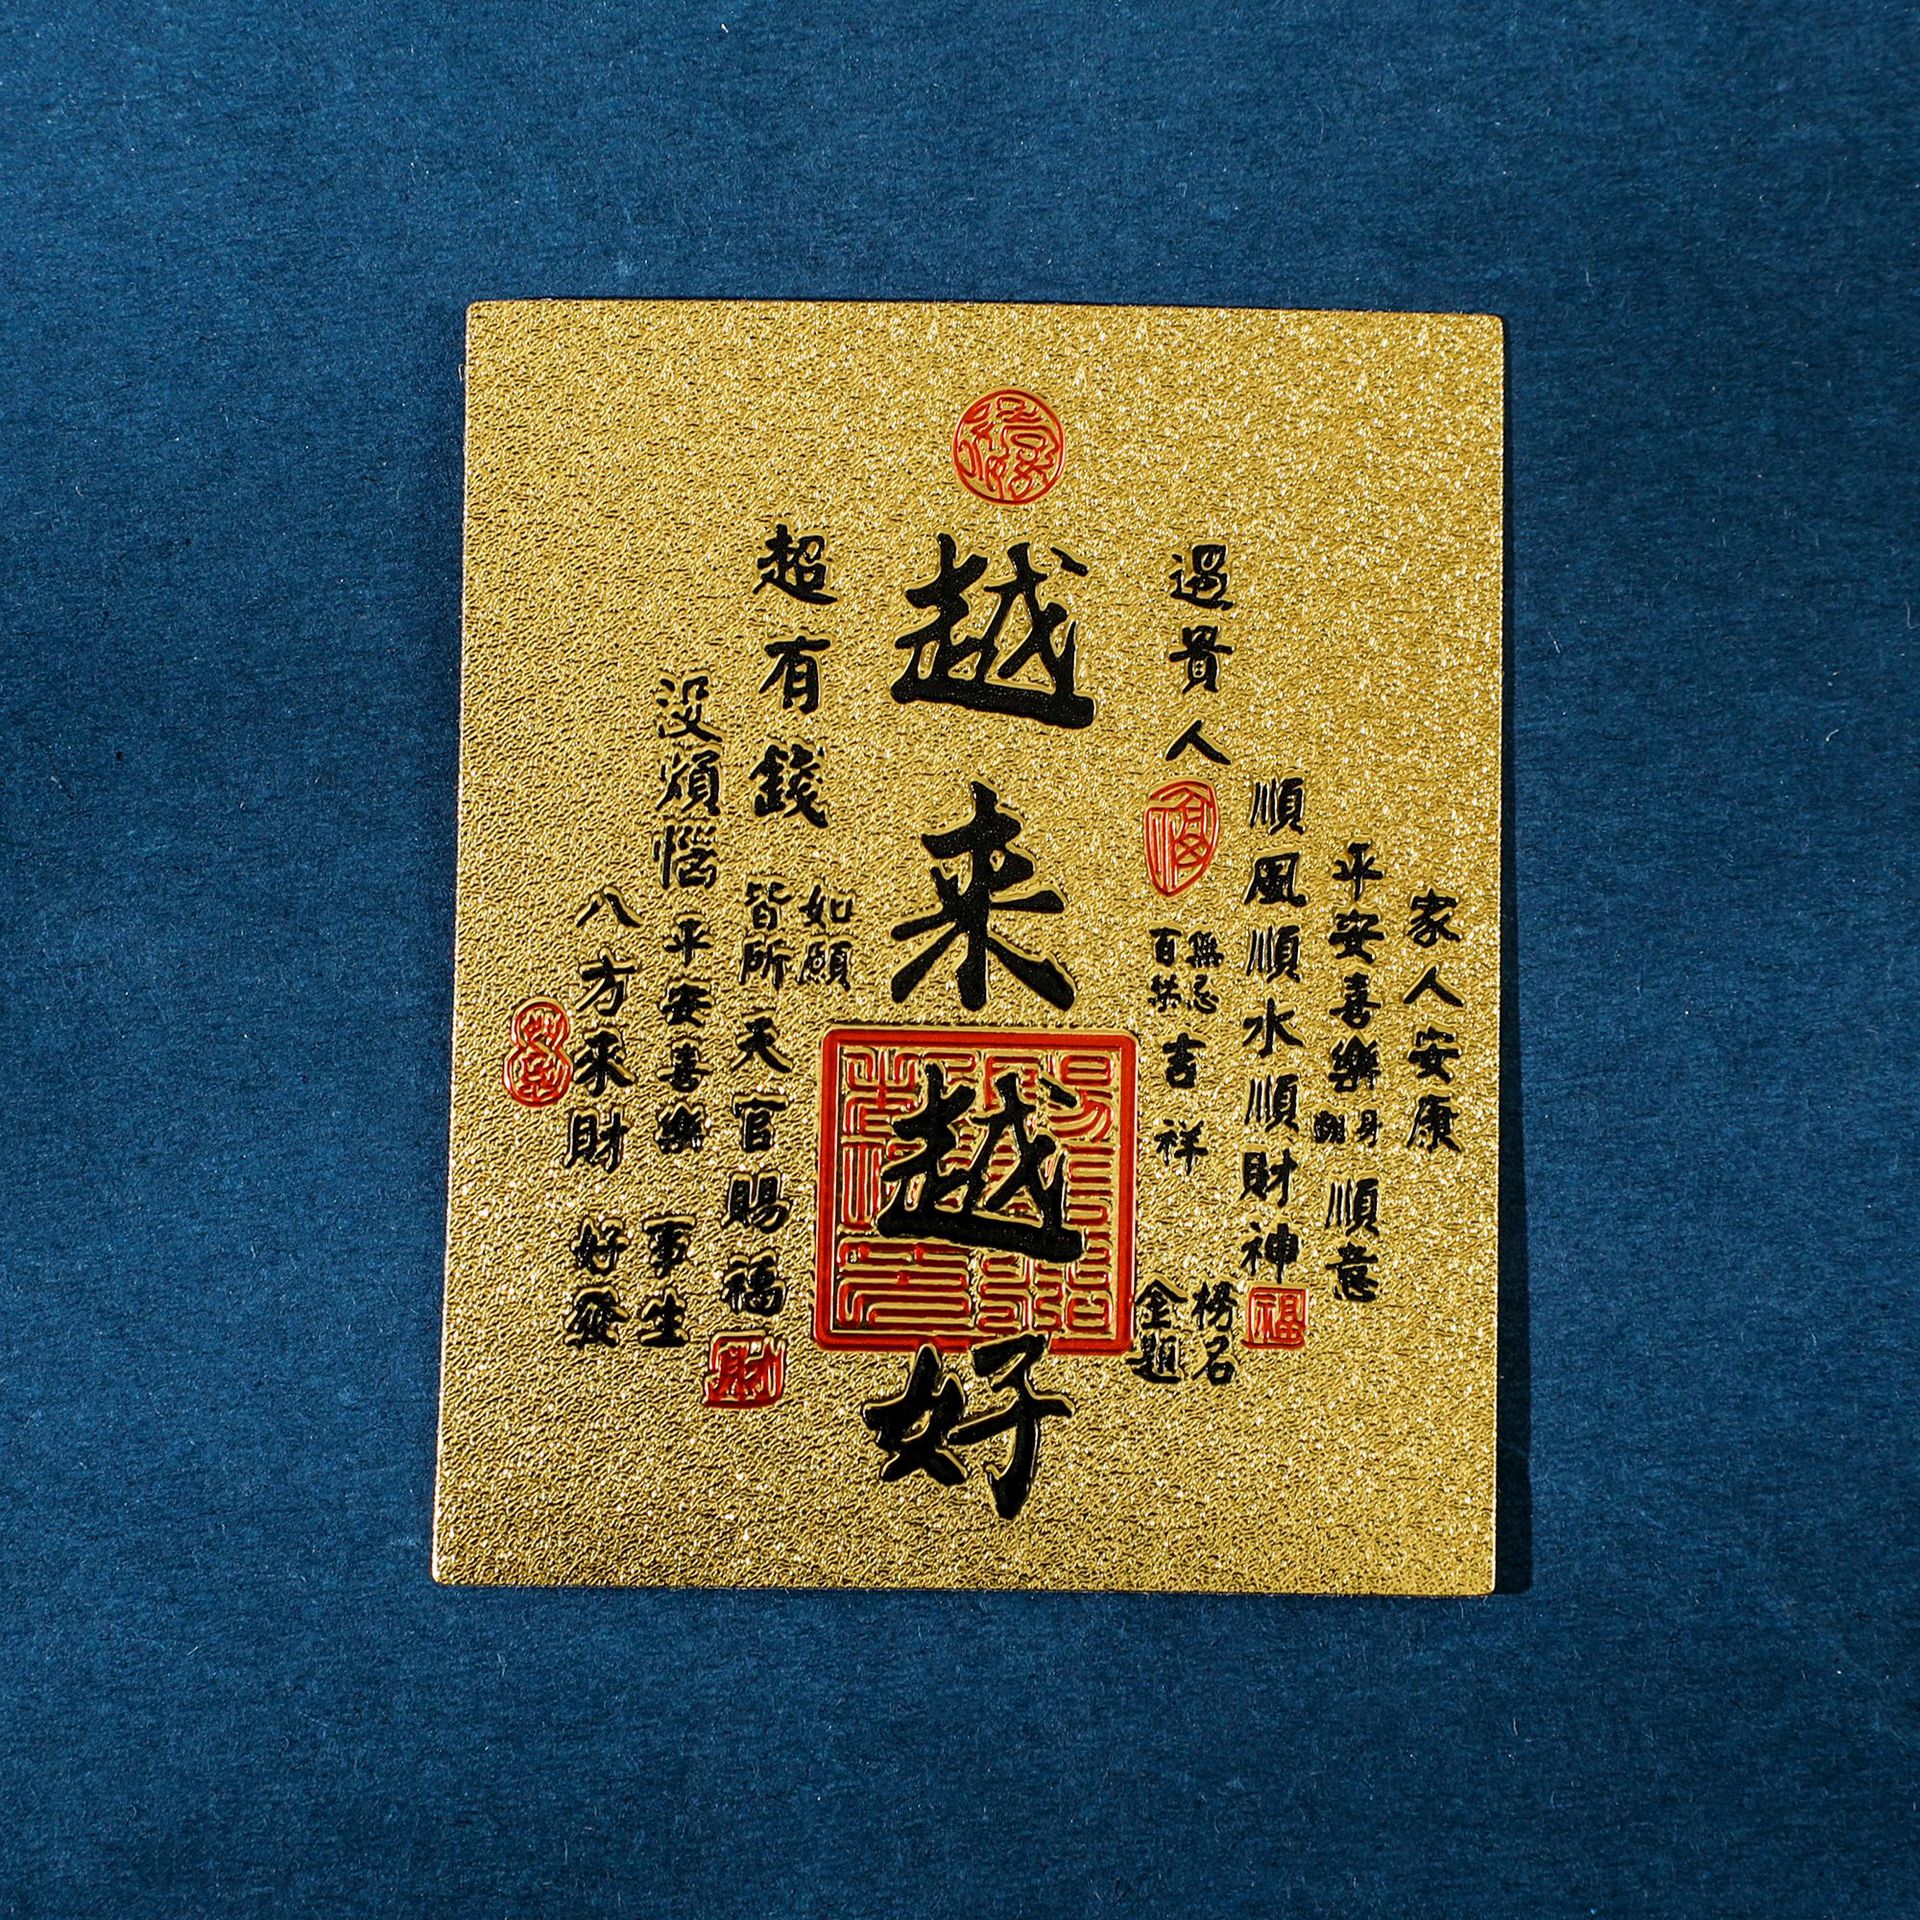 家人安康
平安喜樂
順意
順風順水順財神
福
遇貴人
無忌
百無
吉祥
榜名
金題
越来越好
超有錢
如願
皆所
天官賜福
財
沒煩惱
平安喜樂
事生
好發
八方來財